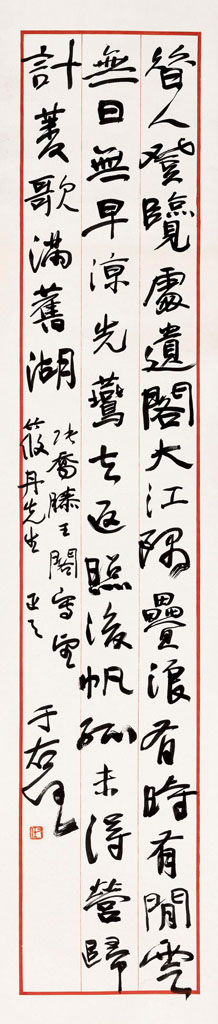 昔人登覽處遺閣大江隅疊浪有時有閒雲
無日無早涼先鷰去返照後帆孤未得營歸
計菱歌滿舊湖
張喬滕王閣寫
筱丹先生 正之
于右任